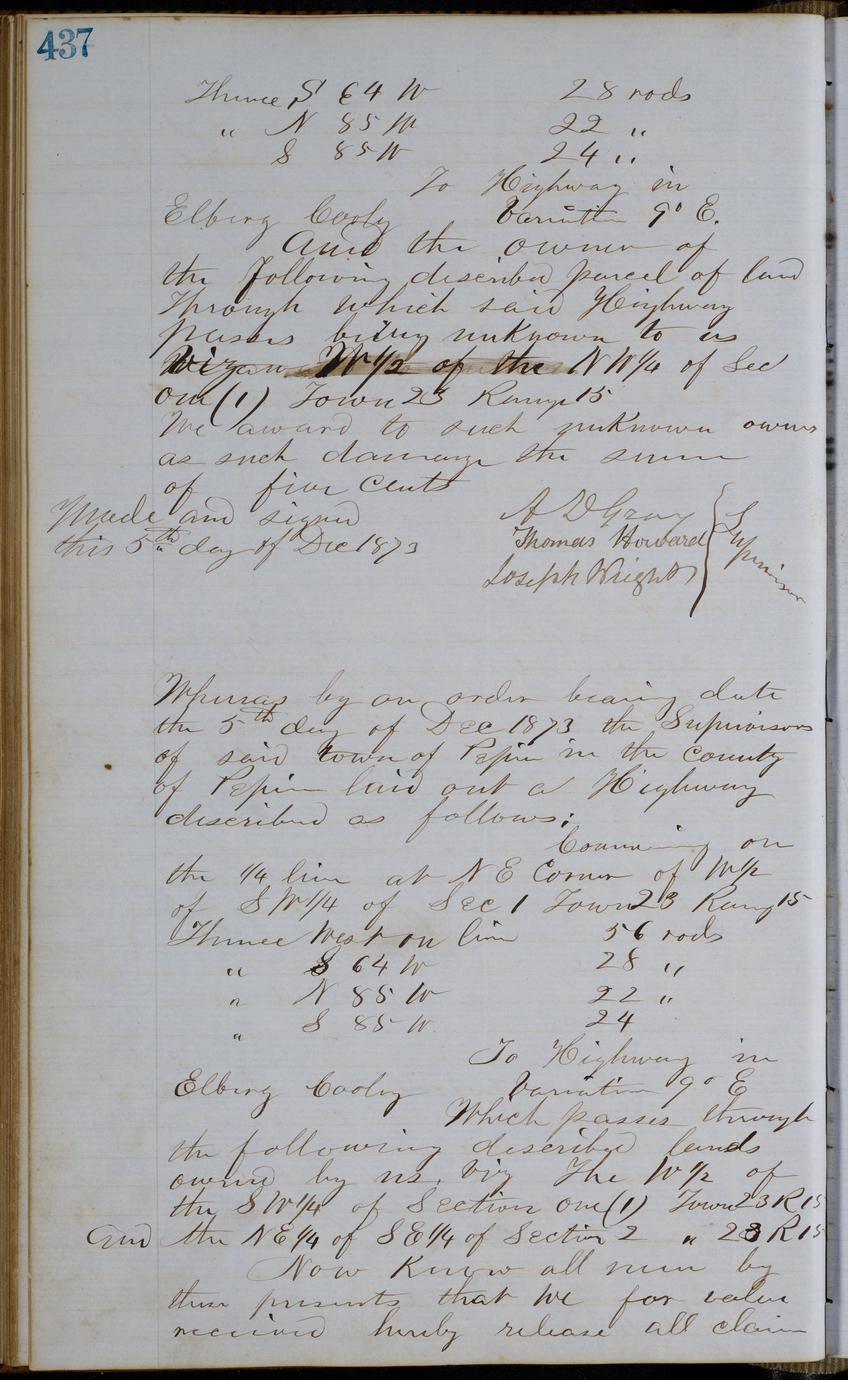 437
Thence S 64 W 28 rods
" N 85 W 22 "
S 85 W 24 "
To Highway in
Elberg Cooly Variation 9° E.
And the owner of
the following described parcel of land
Through which said Highway
passes being unknown to us
Viz W 1/2 of the N W 1/4 of Sec
one (1) Town 23 Range 15
We award to such unknown owner
as such damage the sum
of five cents
Made and signed
this 5th day of Dec 1873
A D Gray
Thomas Howard
Joseph Wright
Supervisor
Whereas by an order bearing date
the 5th day of Dec 1873 the Supervisors
of said town of Pepin in the county
of Pepin laid out a Highway
described as follows:
Commencing on
the 1/4 line at N E Corner of W 1/2
of S W 1/4 of Sec 1 Town 23 Rang 15
Thence West on line 56 rods
" S 64 W 28 "
" N 85 W 22 "
" S 85 W 24
To Highway in
Elberg Cooly Variation 9° E
Which passes through
the following described lands
owned by us, viz The W 1/2 of
the S W 1/4 of Section one (1) Town 23 R 15
And the N E 1/4 of S E 1/4 of Section 2 " 23 R 15
Now Know all men by
these presents that We for value
received hereby release all claim